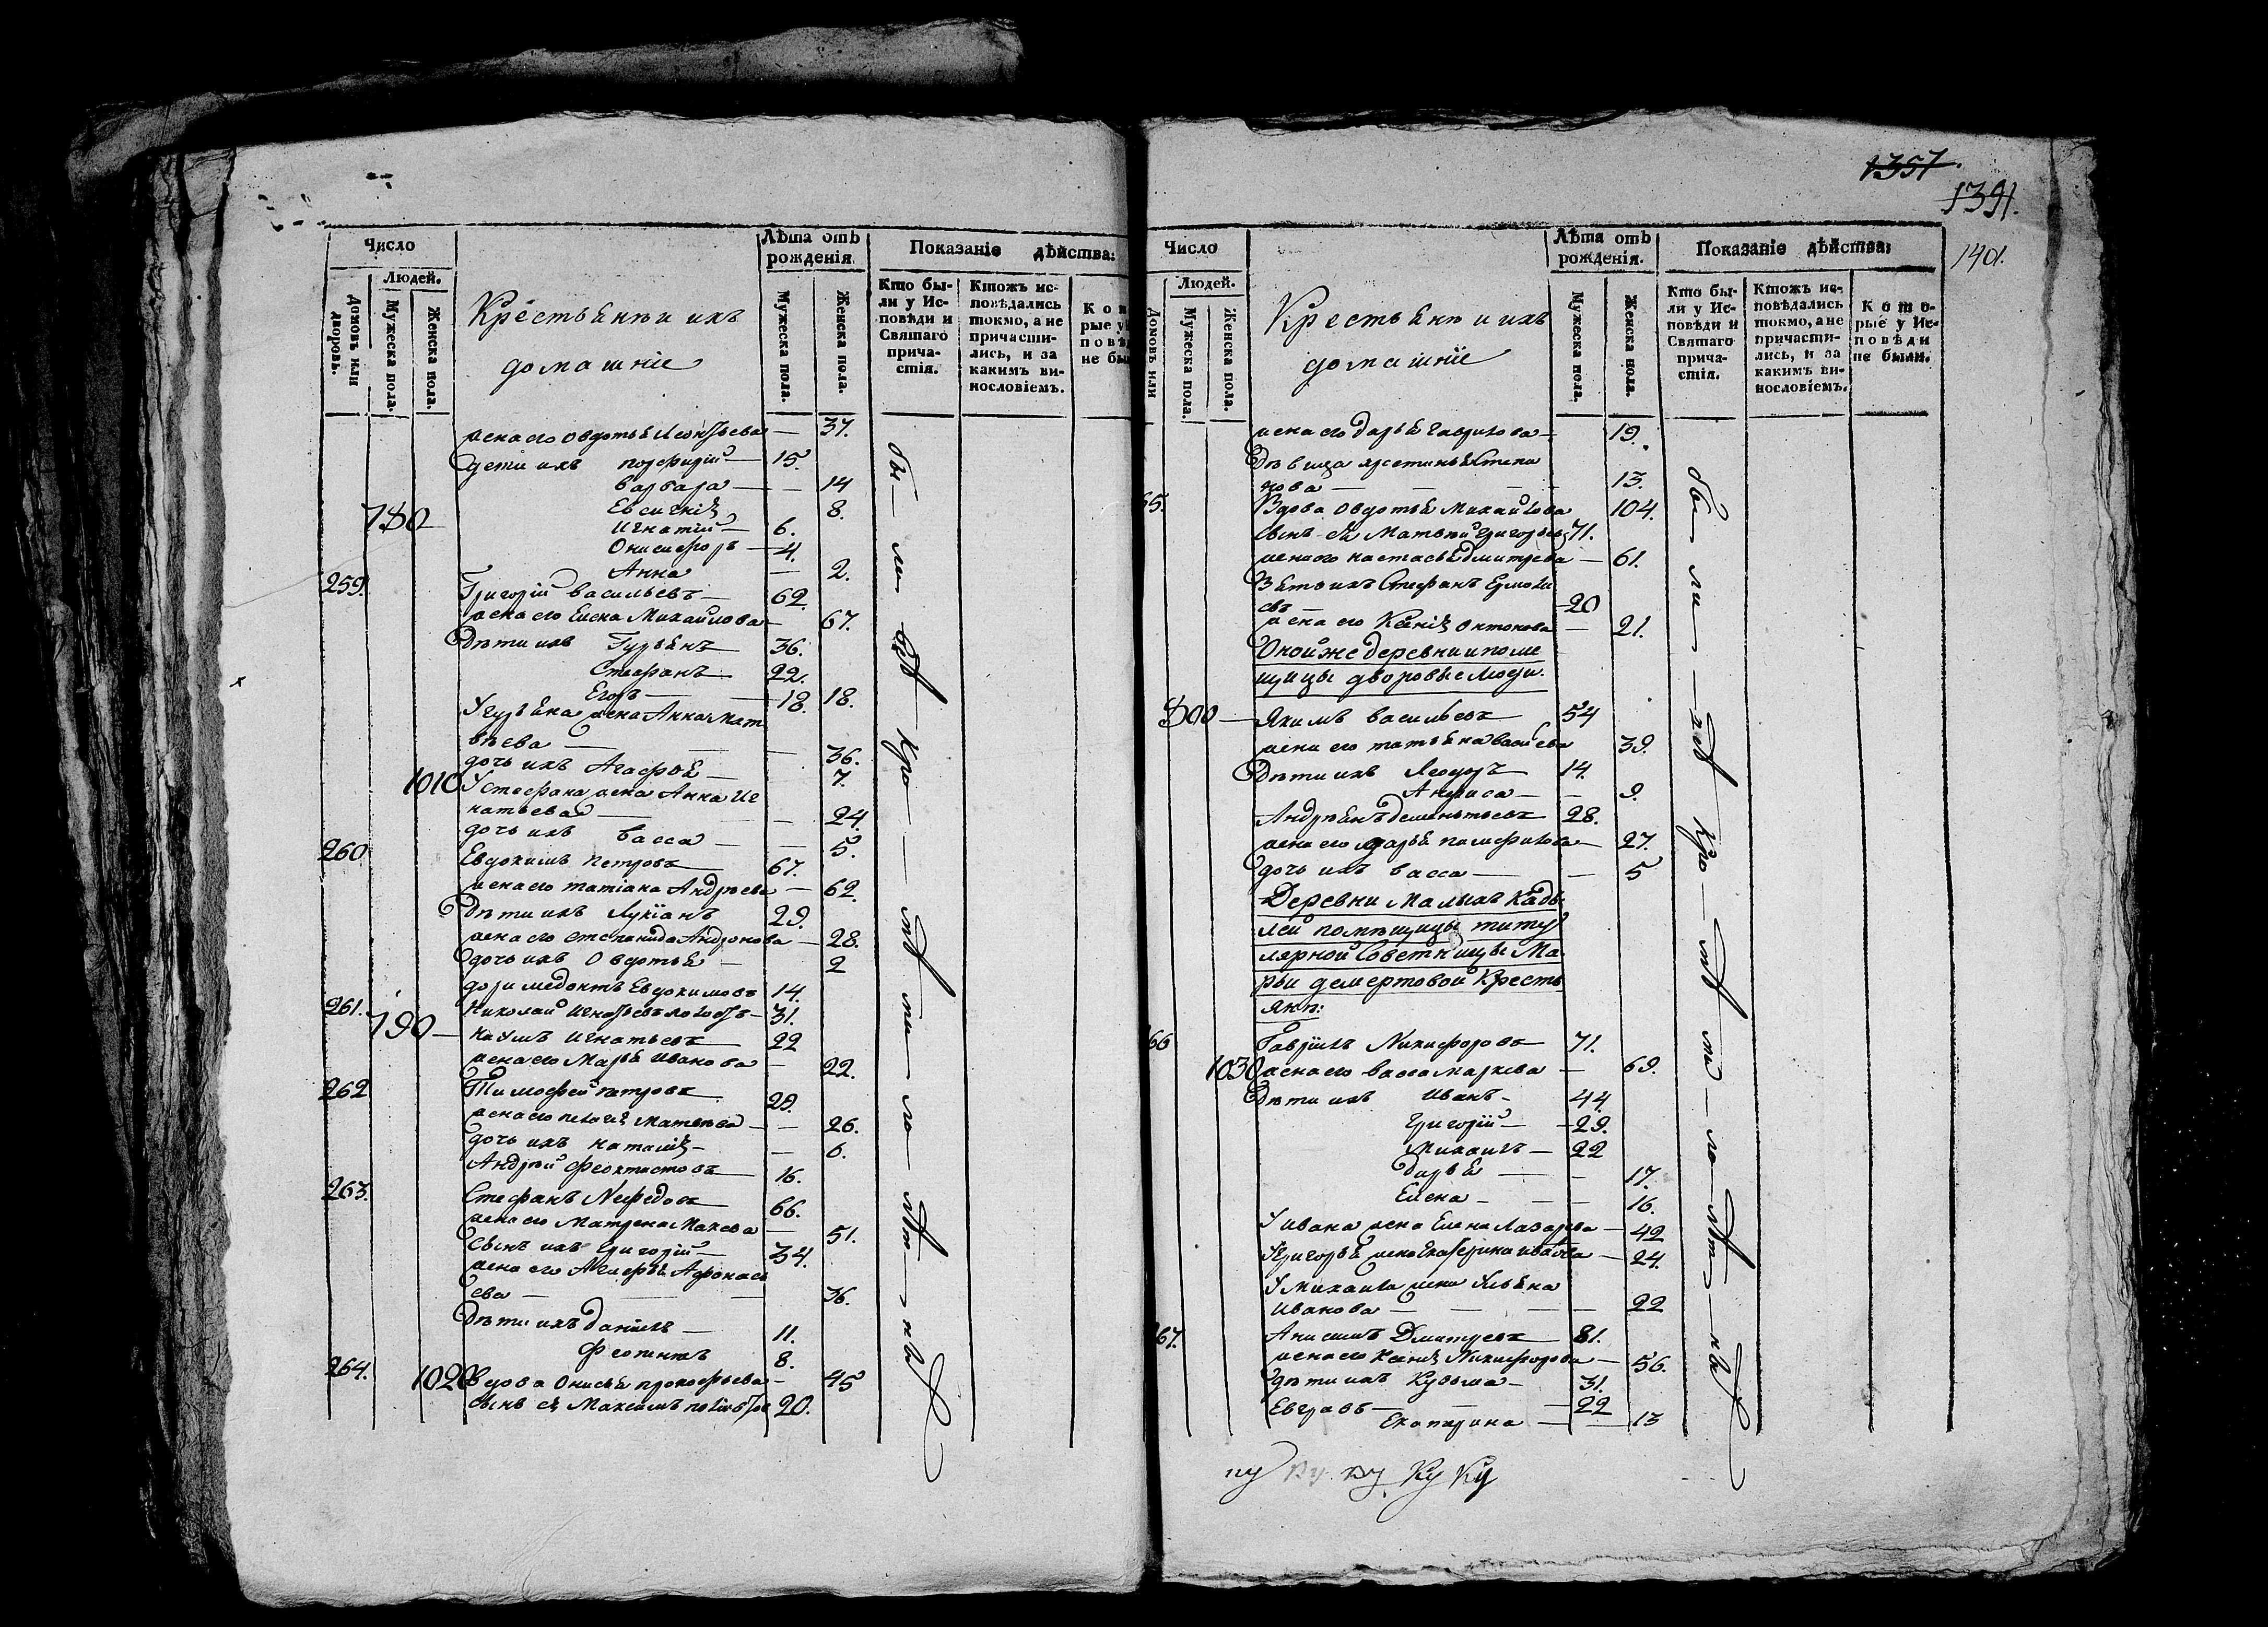 Число
Лѣта отъ рожденія.
Показаніе дѣйства:
Людей.
Домовъ или дворовъ.
Мужеска пола.
Женска пола.
Крестьяне и ихъ
домашніе
Мужеска пола.
Женска пола.
Кто бы-
ли у Ис-
повѣди и
Святаго
прича-
стія.
Ктожъ ис-
повѣдались
токмо, а не
причасти-
лись, и за
какимъ ви-
нословіемъ.
жена его Овдотья Леонтьева — 37.
Дети ихъ Порфирій — 15.
Варвара — 14
Евгенія 8.
780 Игнатій — 6.
Онисифоръ — 4.
Анна — 2.
259. Григорій Васильевъ — 62.
жена его Елена Михайлова — 67.
Дѣти ихъ Гурьянъ 36.
Стефанъ 22.
Егоръ — 18. 18.
У Гурьяна жена Анна Мат
вѣева — 36.
дочь ихъ Агафья — 7.
1010 У Стефана жена Анна Иг
натьева — 24.
дочь ихъ Васса — 5.
260. Евдокимъ Петровъ 67.
жена его Татіана Андреева — 62.
Дѣти ихъ Лукіанъ 29.
жена его Степанида Андронова — 28.
дочь ихъ Овдотья — 2
Доримедонтъ Евдокимовъ 14.
261. Николай Игнатьевъ — 31.
790 — Наумъ Игнатьевъ 22
жена его Марья Иванова — 22.
262 Тимофей Петровъ 29.
жена его Пелагея Матвѣева — 26.
дочь ихъ Наталія — 6.
Андрей Феоктистовъ 16.
263. Стефанъ Нефедовъ 66.
жена его Матрена Макеева — 51.
Сынъ ихъ Григорій — 34.
жена его Агафья Афонась
ева — 36.
Дѣти ихъ Даніилъ — 11.
Феопентъ 8.
264. 1020 Вдова Онисья Прокофьева — 45
Сынъ ея Максимъ 20.
бы — ли — всѣ
1357.
1391.
140.
Число
Лѣта отъ рожденія.
Показаніе дѣйства:
Людей.
Домовъ или
Мужеска пола.
Женска пола.
Крестьяне и ихъ
домашніе
Мужеска пола.
Женска пола.
Кто бы-
ли у Ис-
повѣди и
Святаго
прича-
стія.
Ктожъ ис-
повѣдались
токмо, а не
причасти-
лись, и за
какимъ ви-
нословіемъ.
Кото-
рые у Ис-
повѣди
не были.
жена его Дарья Гаврилова — 19.
Дѣвица Устинья Степа
нова — 13.
65. Вдова Овдотья Михайлова 104.
Сынъ ея Матвѣй Григорьевъ 71.
жена его Настасья Дмитрева — 61.
Зять ихъ Стефанъ Ермола
евъ — 20
жена его Ксенія Антонова — 21.
Оной же деревни и поме
щицы дворовые люди.
800 — Якимъ Васильевъ 54
жена его Татьяна 39.
Дѣти ихъ Ѳеодоръ 14.
Анфиса — 9.
Андреянъ Дементьевъ 28.
жена его Дарья Памфилова — 27.
дочь ихъ Васса — 5
Деревни Малыхъ Кады
лей помѣщицы титу
лярной Советницы Ма
рьи Демертовой Кресть
яне:
66 Гавріилъ Никифоровъ 71.
1030 жена его Васса Маркева — 69.
Дѣти ихъ Иванъ — 44.
Григорій — 29.
Михаилъ — 22
Дарья — 17.
Елена — 16.
У Ивана жена Елена Лазарева — 42
У Григорья жена Екатерина Иванова — 24.
У Михаила жена Ульяна
Иванова — 22
67. Анисимъ Дмитревъ 81.
жена его Ксенія Никифорова — 56.
Дѣти ихъ Кузьма — 31.
Евграфъ — 22
Екатерина — 13
бы — ли —
ку ку ку ку